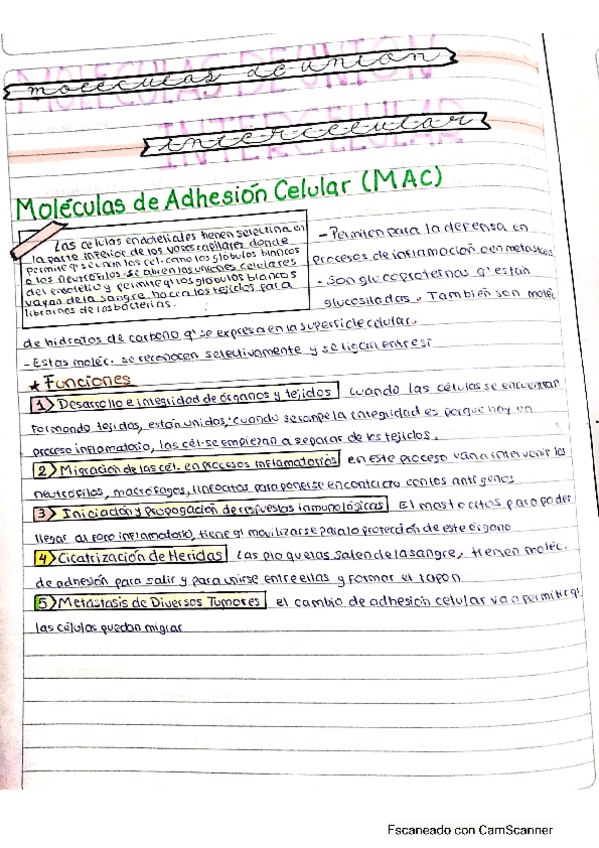 moleculas de union
MOLECULAS DE UNION
intercelular
INTERCELULAR
Moléculas de Adhesión Celular (MAC)
Las celulas endoteliales tienen selectina en
la parte inferior de los vasos capilares donde
permite q' se unan los cel. como los glóbulos blancos
o los neutrófilos. se abren las uniones celulares
del endotelio y permite q' los glóbulos blancos
vayan de la sangre hacia los tejidos para
librarnos de las bacterias.
- Permiten para la defensa en
procesos de inflamación cen metastasis
- son glucoproteínas q' estan
glucosiladas. También son moléc
de hidratos de carbono q' se expresa en la superficie celular.
- Estas moléc. se reconocen selectivamente y se ligan entre sí
★ Funciones
1> Desarrollo e integridad de órganos y tejidos cuando las células se encuentran
formando tejidos, están unidos, cuando se rompe la integridad es porque hay un
proceso inflamatorio, las cél. se empiezan a separar de los tejidos.
2> Migración de las cél. en procesos inflamatorios en este proceso van a intervenir los
neutrófilos, macrófagos, linfocitos para ponerse en contacto con los antígenos
3> Iniciación y propagación de respuestas inmunológicas El mastocitos para poder
llegar al foro inflamatorio, tiene q' movilizarse para la protección de este órgano
4> Cicatrización de Heridas Las plaquetas salen de la sangre, tienen moléc.
de adhesión para salir y para unirse entre ellas y formar el tapon
5> Metastasis de Diversos Tumores el cambio de adhesion celular va a permitir q'
las células puedan migrar
Escaneado con CamScanner